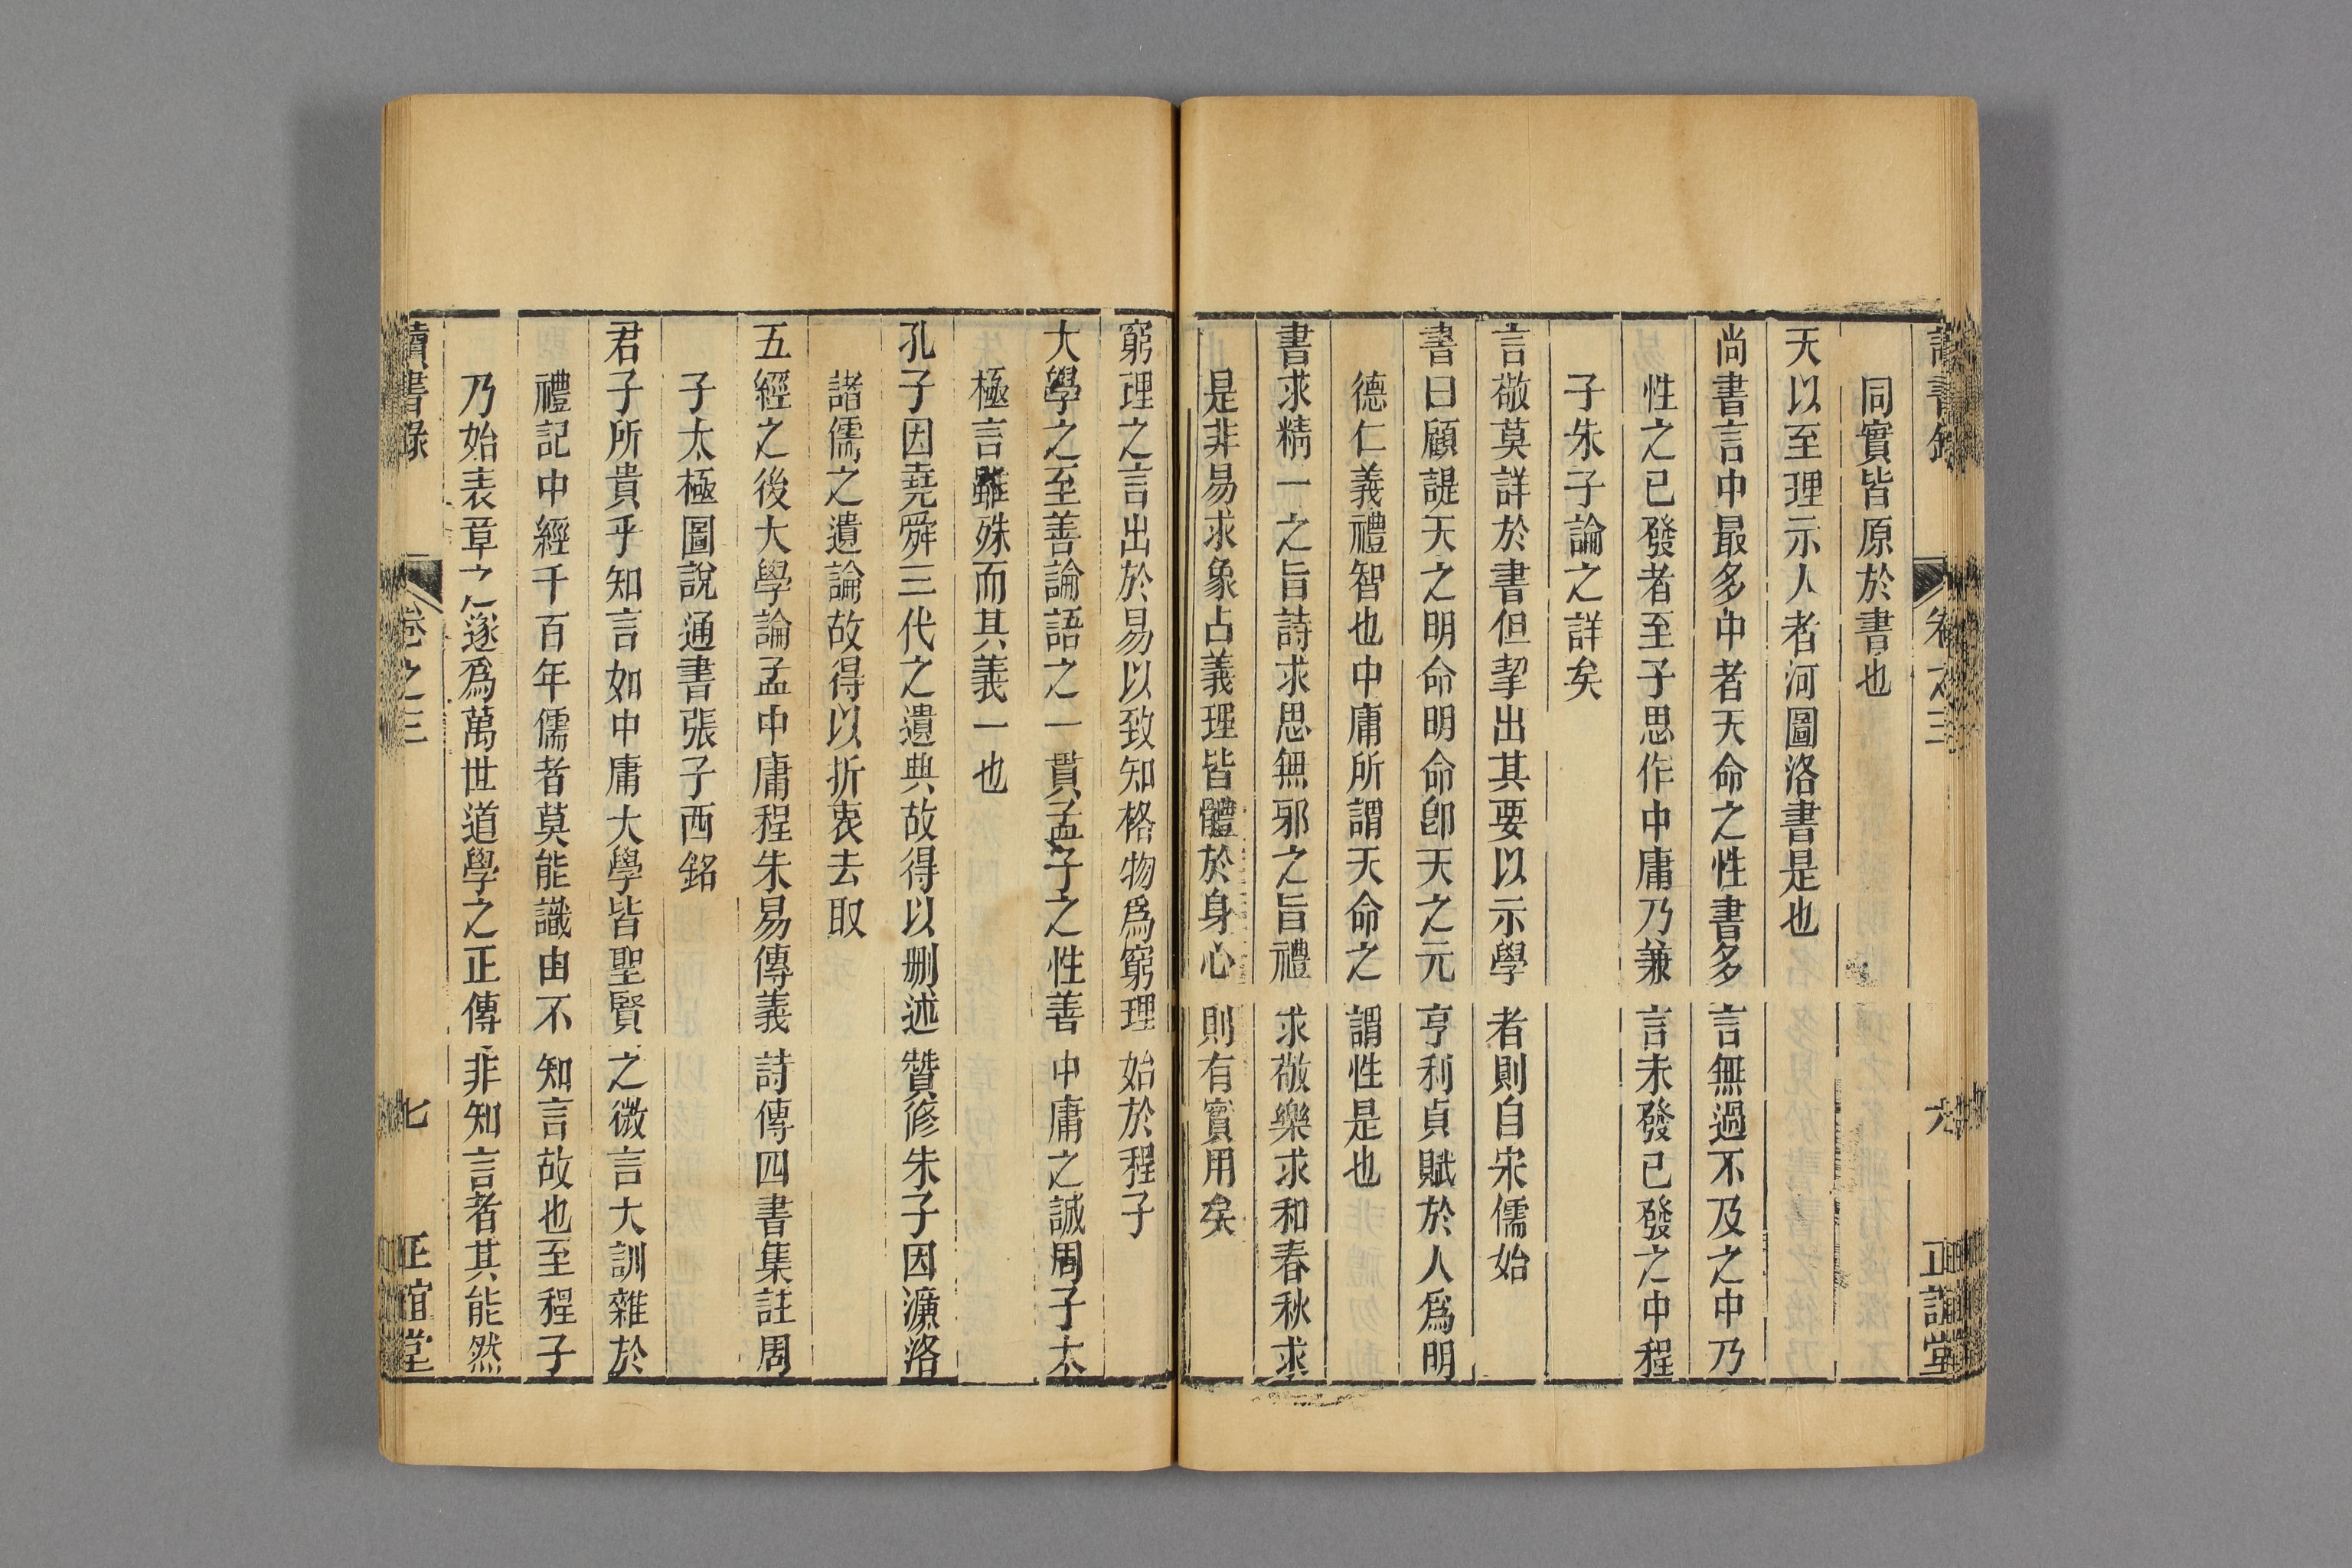 讀書錄 卷之三 六 正誼堂
同實皆原於書也
天以至理示人者河圖洛書是也
尚書言中最多中者天命之性書多言無過不及之中乃
性之已發者至子思作中庸乃兼言未發已發之中程
子朱子論之詳矣
言敬莫詳於書但挈出其要以示學者則自宋儒始
書曰顧諟天之明命明命卽天之元亨利貞賦於人爲明
德仁義禮智也中庸所謂天命之謂性是也
書求精一之旨詩求思無邪之旨禮求敬樂求和春秋求
是非易求象占義理皆體於身心則有實用矣
窮理之言出於易以致知格物爲窮理始於程子
大學之至善論語之一貫孟子之性善中庸之誠周子太
極言雖殊而其義一也
孔子因堯舜三代之遺典故得以刪述贊修朱子因濂洛
諸儒之遺論故得以折衷去取
五經之後大學論孟中庸程朱易傳義詩傳四書集註周
子太極圖說通書張子西銘
君子所貴乎知言如中庸大學皆聖賢之微言大訓雜於
禮記中經千百年儒者莫能識由不知言故也至程子
乃始表章之遂爲萬世道學之正傳非知言者其能然
讀書錄 卷之三 七 正誼堂